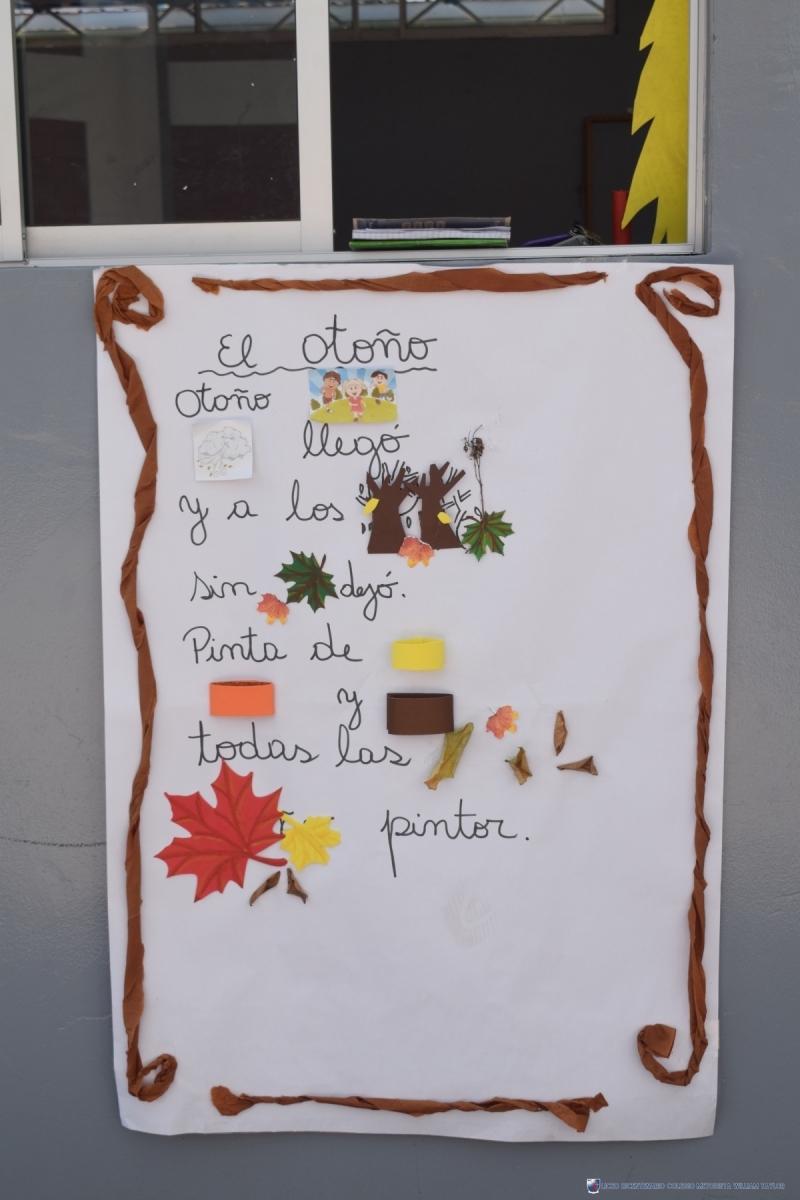 El otoño
otoño
llegó
y a los
sin dejó.
Pinta de
y
todas las
pintor.
LICEO BICENTENARIO COLEGIO METODISTA WILLIAM TAYLOR